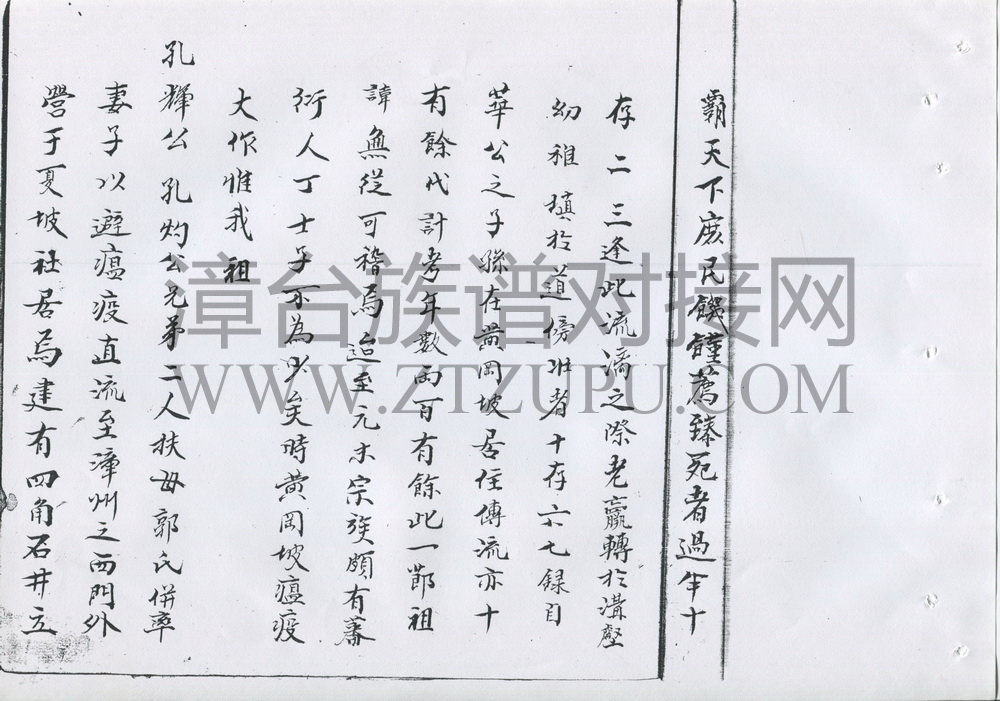 霸天下庶民饑饉薦臻死者過半十
存二三逢此流漓之際老羸轉於溝壑
幼稚填於道傍壯者十存六七錄自
華公之子孫在黃岡坡居住傳流亦十
有餘代計考年數兩百有餘此一節祖
諱無從可稽焉迨至元末宗族頗有蕃
衍人丁士子不為少矣時黃岡坡瘟疫
大作惟我祖
孔輝公孔灼公兄弟二人扶母郭氏併率
妻子以避瘟疫直流至漳州之西門外
營于夏坡社居焉建有四角石井立
漳台族谱对接网
WWW.ZTZUPU.COM